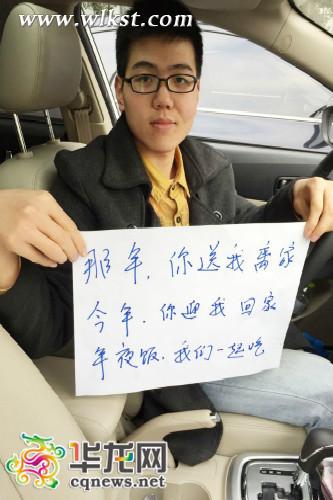 www.wlkst.com
那年，你送我离家
今年，你迎我回家
年夜饭，我们一起吃
华龙网
cqnews.net